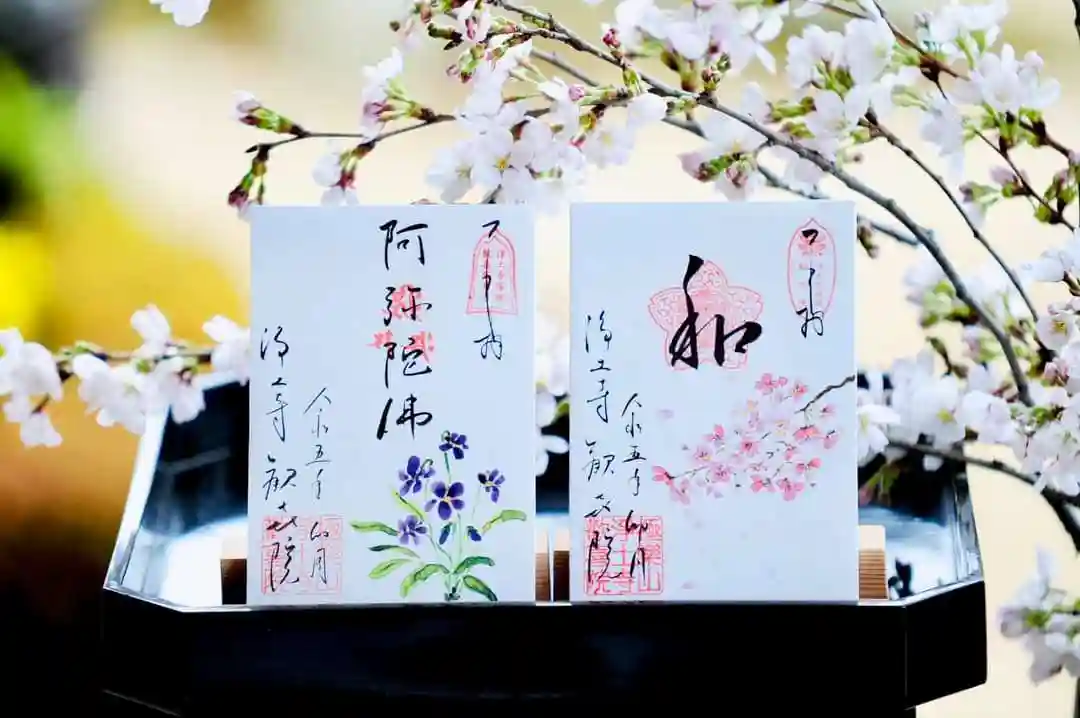 奉拝
和
令和五年 卯月
浄土寺 歓喜院
奉拝
阿弥陀佛
令和五年 卯月
浄土寺 歓喜院